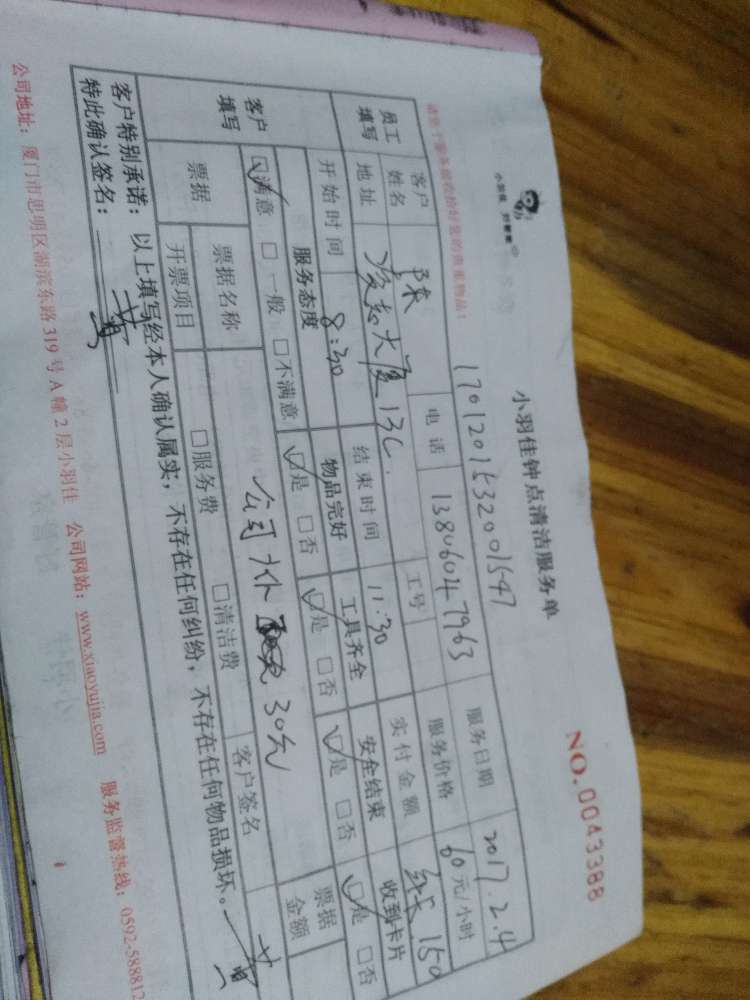 小羽佳钟点清洁服务单
NO.0043388
小羽佳
1701201532001547
请您于服务前收拾好您的贵重物品!
员工填写
客户姓名 陈 电话 13806047963 服务日期 2017.2.4
地址 大厦13C. 工号 服务价格 60元/小时
开始时间 8:30 结束时间 11:30 实付金额 150
客户填写
服务态度 物品完好 工具齐全 安全结束 收到卡片
☑满意 □一般 □不满意 ☑是 □否 ☑是 □否 ☑是 □否 ☑是 □否
公司补 30元
票据 票据名称 客户签名 票据金额
开票项目 □服务费 □清洁费
客户特别承诺：以上填写经本人确认属实，不存在任何纠纷，不存在任何物品损坏。
特此确认签名：
公司地址：厦门市思明区湖滨东路319号A幢2层小羽佳 公司网站：www.xiaoyujia.com 服务监督热线：0592-588812